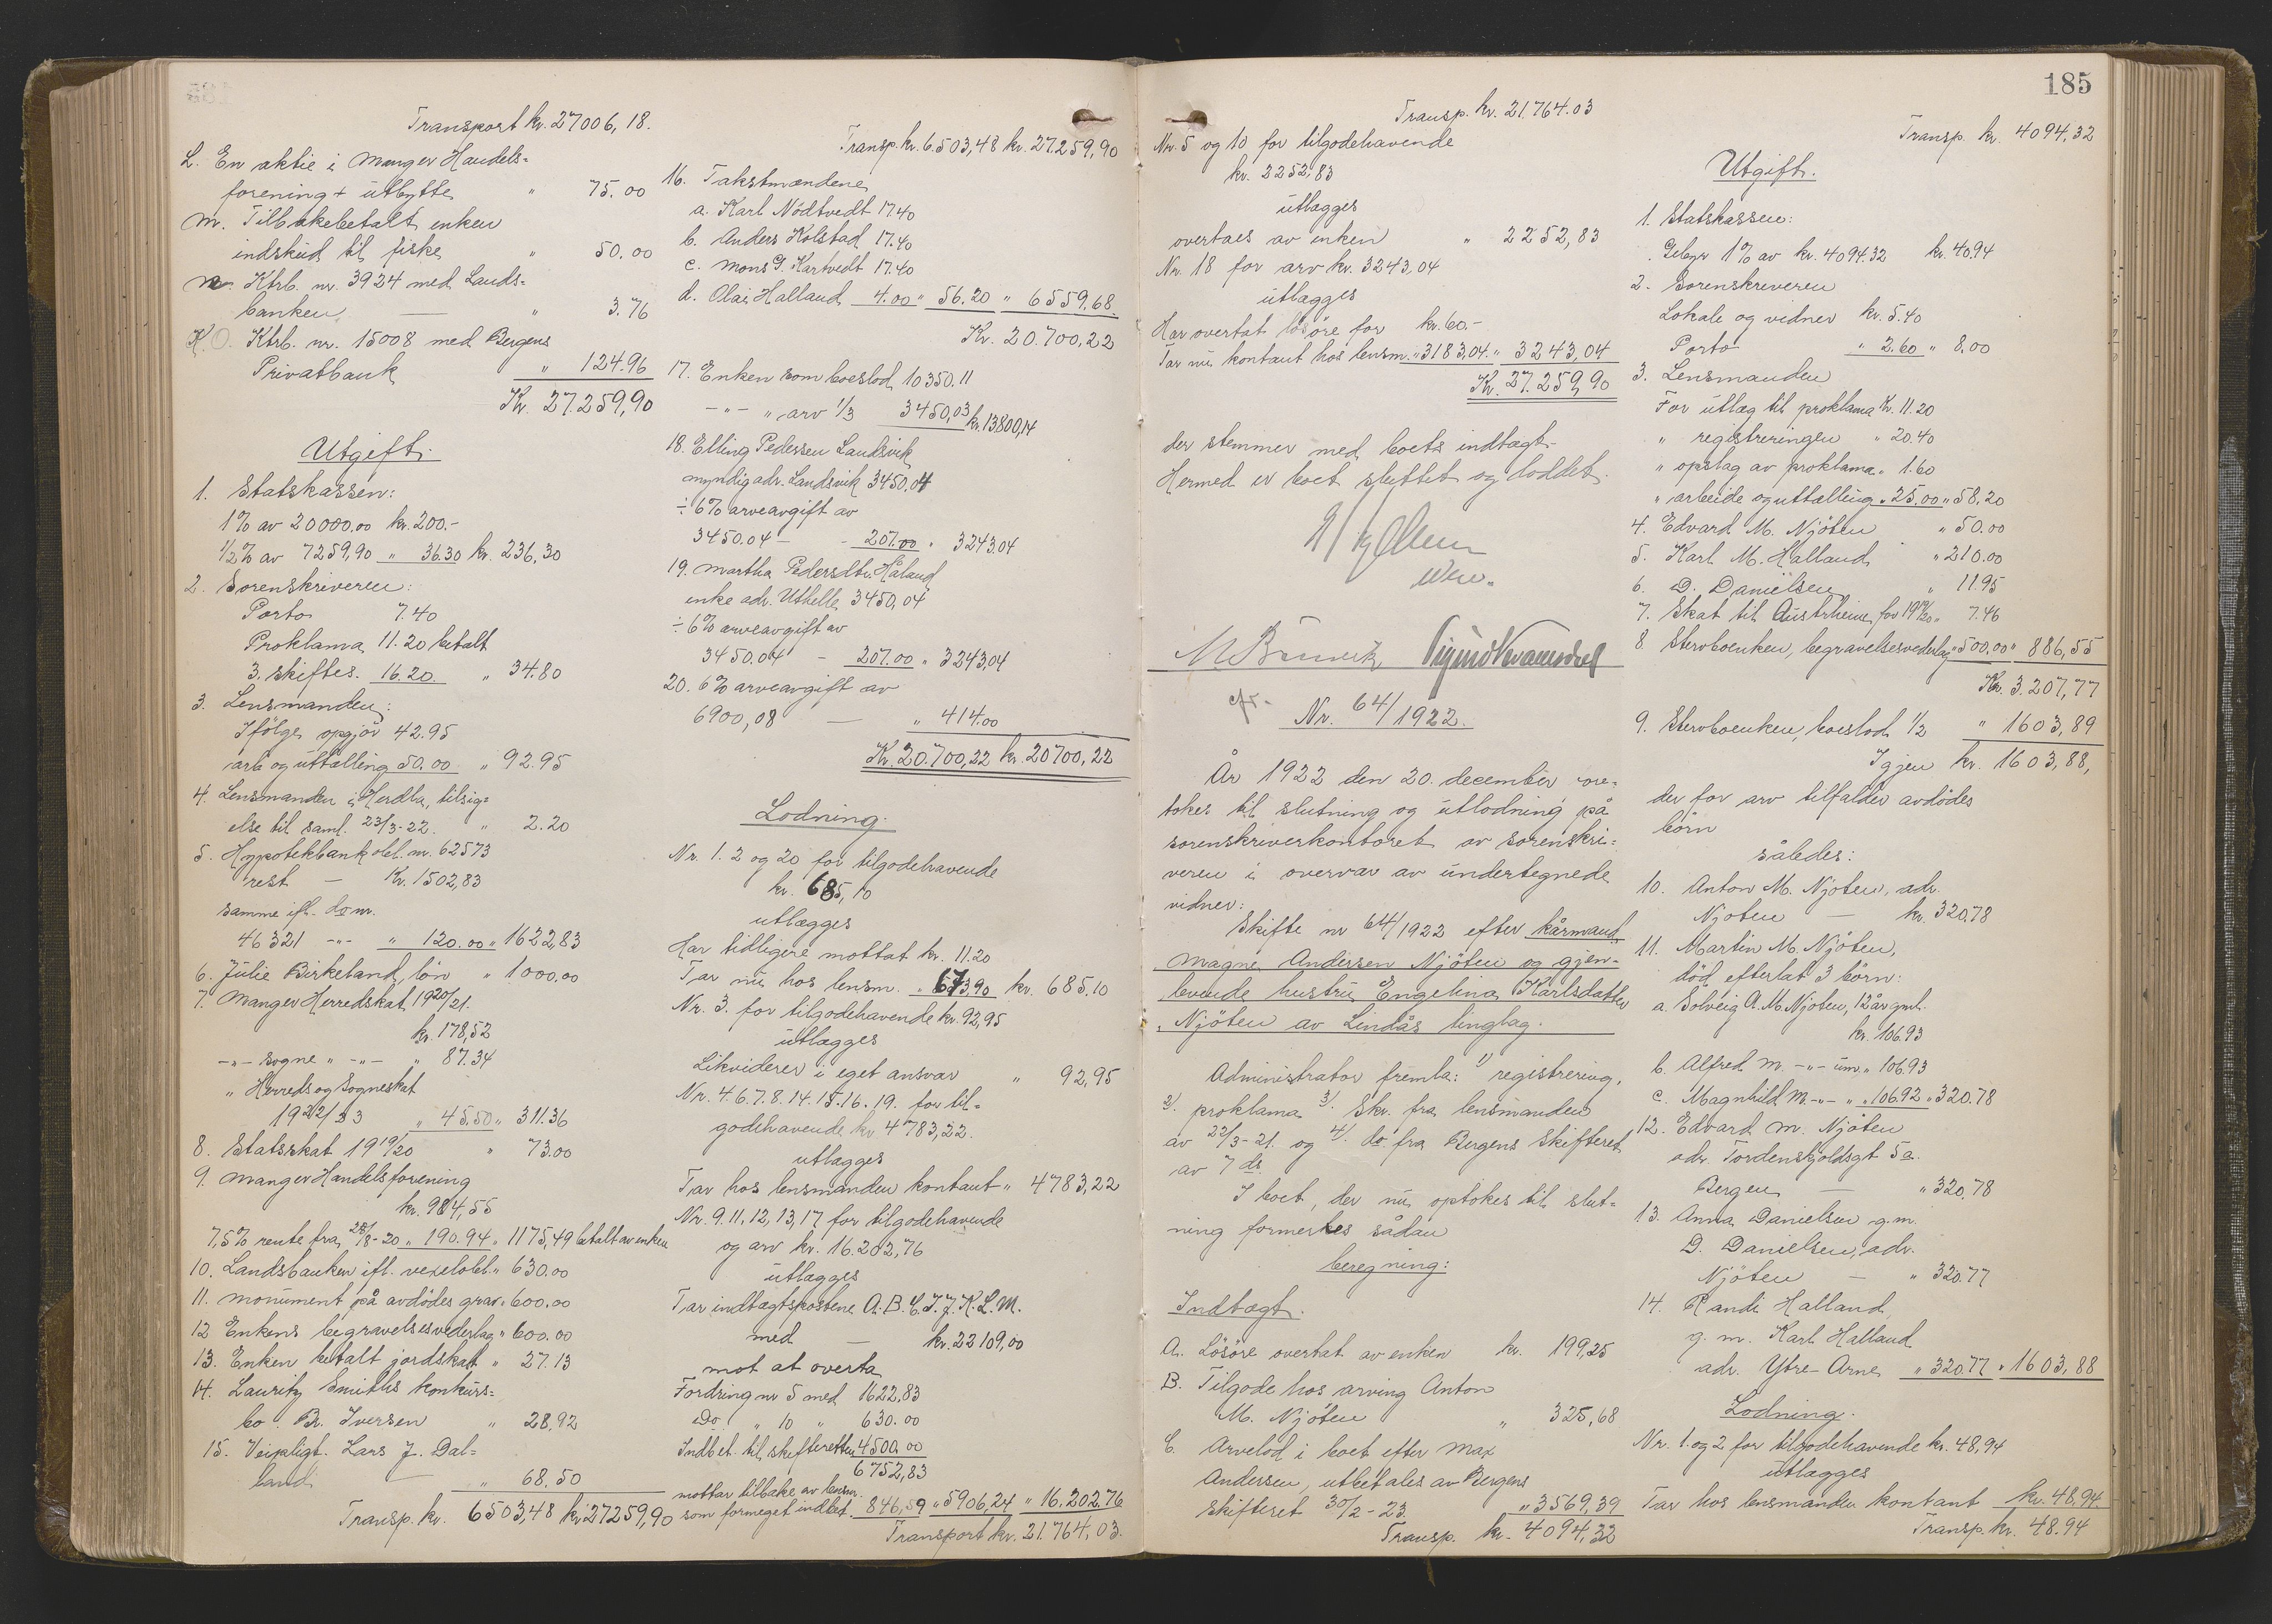 Transport kr. 27006,18.
L. En aktie i Manger Handels=
forening + utbytte " 75.00
M. Tilbakebetalt enken
indskud til fiske " 50.00
n. Ktrb. nr. 3924 med Lands=
banken — " 3.76
O. Ktrb. nr. 15008 med Bergens
Privatbank " 124.96
Kr. 27.259,90
Utgift.
1. Statskassen:
1% av 20000,00 kr. 200.-
1/2% av 7259,90 " 36.30 kr. 236,30
2. Sorenskriveren:
Porto 7.40
Proklama 11.20 betalt
3. skiftes. 16.20. " 34.80
3. Lensmanden:
Ifölge opgjör 42.95
arb og uttælling 50.00 " 92.95
4. Lensmanden i Herdla, tilsig=
else til saml. 23/3-22. " 2.20
5. Hypotekbank obl. nr. 62573
rest — Kr. 1502,83
samme ifl. do nr.
46321 -"- " 120.00 " 1622,83
6. Julie Birkeland, lön " 1000,00
7. Manger Herredskat 1920/21.
kr. 178,52
-"- Sogne " -"- " 87.34
" Herreds og Sogneskat
1922/23 " 45.50 " 311.36
8. Statsskat 1919/20 " 73.00
9. Manger Handelsforening
kr. 984,55
7,5% rente fra 28/8-20 " 190.94 " 1175,49 betalt av enken
10. Landsbanken ifl. vexelobl. " 630.00
11. Monument på avdödes grav " 600,00
12 Enkens begravelsesvederlag " 600.00
13. Enken betalt jordskat " 27.13
14. Lauritz Smiths konkurs=
bo. Br. Iversen " 28,92
15. Veipligt. Lars J. Dal=
land — " 68.50
Transp. kr. 6503,48 kr 27259,90
Transp. kr. 6.503,48 kr. 27.259,90
16. Takstmændene
a. Karl Nödtvedt 17.40
b. Anders Kolstad 17.40
c. Mons G. Kartvedt 17.40
d. Olai Halland 4.00 " 56.20 " 6559,68.
Kr. 20.700,22
17. Enken som boeslod 10350.11
-"- " arv 1/3 3450,03 kr. 13800,14
18. Elling Pedersen Landsvik
myndig adr. Landsvik 3450,04
÷ 6% arveavgift av
3450.04 - - 207.00 " 3243,04
19. Martha Pedersdtr. Håland
enke adr. Uthelle 3450,04
÷ 6% arveavgift av
3450.04 - 207.00 " 3243,04
20. 6% arveavgift av
6900,08 — " 414.00
Kr. 20.700,22 kr. 20700,22
Lodning.
Nr. 1. 2 og 20 for tilgodehavende
kr. 685,10
utlægges
Har tidligere mottat kr. 11.20
Tar nu hos lensm. " 673,90 kr. 685.10
Nr. 3. for tilgodehavende kr. 92,95
utlægges
Likviderer i eget ansvar " 92,95
Nr. 4.6.7.8.14.15.16.19. for til=
godehavende kr 4783,22.
utlægges
Tar hos lensmanden kontant " 4783,22
Nr. 9.11,12,13,17 for tilgodehavende
og arv kr. 16.202,76
utlægges
Tar indtægtspostene A.B.C.I.J.K.L.M.
med — kr. 22109,00
mot at overta
Fordring nr 5 med 1622,83
Do " 10 " 630.00
Indbet. til skifteretten 4500.00
6752,83
mottar tilbake av lensm.
som formeget indbet. 846,59 " 5906,24 " 16.202.76
Transport kr. 21.764,03.
185
Transp. kr. 21.764.03
Nr. 5 og 10 for tilgodehavende
kr. 2252,83
utlægges
overtaes av enken " 2252,83
Nr. 18 for arv kr. 3243,04
utlægges
Har overtat lösöre for kr. 60.-
Tar nu kontant hos lensm. " 3183,04. " 3243,04
Kr. 27.259,90
der stemmer med boets indtægt.
Hermed er boet sluttet og loddet.
cfr.
Nr. 64/1922.
År 1922 den 20. december fore=
tokes til slutning og utlodning på
sorenskriverkontoret av sorenskri=
veren i overvær av undertegnede
vidner:
Skifte nr 64/1922 efter kårmand
Magne Andersen Njöten og gjen=
levende hustru Engelina Karlsdatter
Njöten av Lindås tinglag.
Administrator fremla: 1) registrering,
2). proklama 3). Skr. fra lensmanden
av 22/3-21. og 4). do fra Bergens Skifteret
av 7 ds.
I boet, der nu optokes til slut=
ning formerkes sådan
beregning:
Indtægt.
A. Lösöre overtat av enken kr. 199,25
B. Tilgode hos arving Anton
M. Njöten " 325,68
C. Arvelod i boet efter Max
Andersen, utbetales av Bergens
Skifteret 30/2-23. " 3569,39
Transp. kr. 4094,32
Transp. kr. 4094,32
Utgift.
1. Statskassen:
Gebyr 1% av kr. 4094.32 kr. 40.94
2. Sorenskriveren
Lokale og vidner kr. 5.40
Porto " 2.60 " 8,00
3. Lensmanden
For utlæg til proklama kr. 11.20
" registreringen " 20.40
" opslag av proklama " 1.60
" arbeide og uttælling " 25,00 " 58,20
4. Edvard M. Njöten " 50.00
5. Karl M. Halland " 210.00
6. D. Danielsen " 11.95
7. Skat til Austrheim for 1919/20 " 7.46
8 Stervboenken, begravelsesvederlag " 500,00 " 886,55
Kr. 3.207,77
9. Stervboenken, boeslod 1/2 " 1603,89
Igjen kr. 1603,88,
der for arv tilfalder avdödes
börn
således:
10. Anton M. Njöten, adr.
Njöten — kr. 320.78
11. Martin M. Njöten,
död, efterlat 3 börn:
a. Solveig A.M. Njöten, 12 år gml.
kr. 106.93
b. Alfred M. -"- um. " 106.93
c. Magnhild M. -"- " " 106.92 " 320.78
12. Edvard M. Njöten
adr. Tordenskjoldsgt 5a.
Bergen — " 320,78
13. Anna Danielsen g.m.
D. Danielsen, adr.
Njöten — " 320.77
14. Randi Halland
g. m. Karl Halland
adr. Ytre-Arne " 320.77 " 1603,88
Lodning.
Nr. 1. og 2 for tilgodehavende kr. 48,94
utlægges
Tar hos lensmanden kontant kr. 48,94.
Transp. kr. 48.94